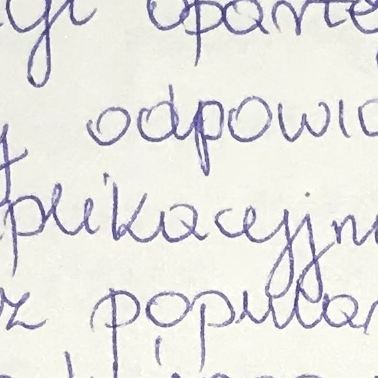 gi oparte
odpowi
plikacyjn
z popular